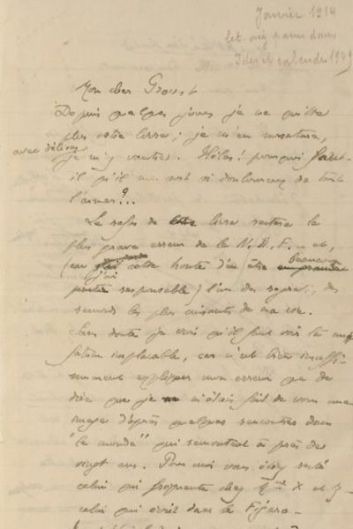 Janvier 1914
Mon cher Proust
Depuis quelques jours je ne quitte
plus votre livre; je m'en sursature,
avec délices
je m'y vautre. Hélas! pourquoi faut-
il qu'il me soit si douloureux de tant
l'aimer?...
Le refus de ce livre restera la
plus grave erreur de la N.R.F. - et,
(car j'ai cette honte d'en être beaucoup
responsable) l'un des regrets, des
remords les plus cuisants de ma vie.
Sans doute je crois qu'il faut voir là une
fatalité implacable, car c'est bien insuffi-
samment expliquer mon erreur que de
dire que je m'étais fait de vous une
image d'après quelques rencontres dans
"le monde" qui remontent à près de
vingt ans. Pour moi vous étiez resté
celui qui fréquente chez Mme X et Z -
celui qui écrit dans le Figaro.